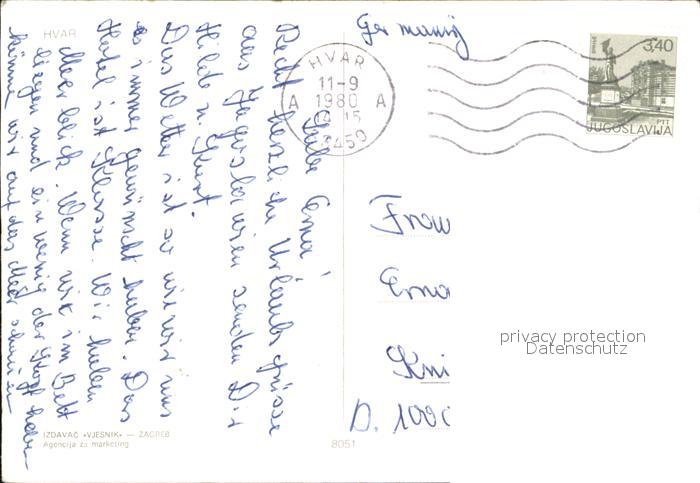 HVAR
Germany
HVAR
11-9
1980
A A
14-15
58450
3,40
PTT
JUGOSLAVIJA
Liebe Erna!
Recht herzliche Urlaubsgrüsse
aus Jugoslawien senden Dir
Hilde u. Kurt.
Das Wetter ist so wie wir uns
es immer gewünscht haben. Das
Hotel ist Klasse. Wir haben
Meerblick. Wenn wir im Bett
liegen und ein wenig den Kopf heben
können wir auf das Meer schauen
Frau
Erna
D. 1000
privacy protection
Datenschutz
IZDAVAČ »VJESNIK« — ZAGREB
Agencija za marketing
8051